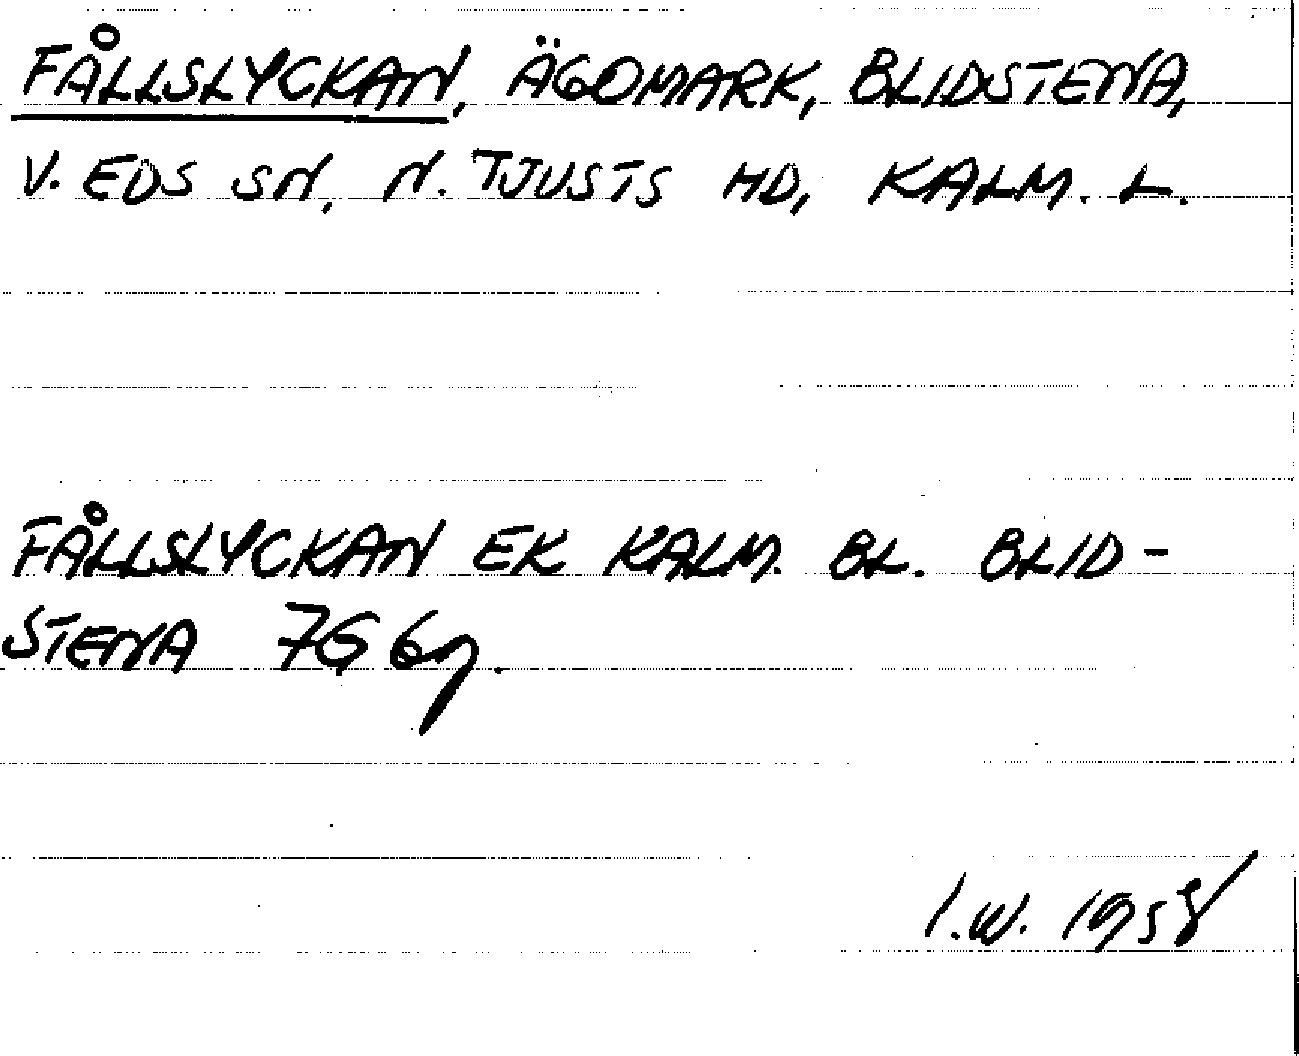 FÅLLSLYCKAN, ÄGOMARK, BLIDSTENA,
V. EDS SN, N. TJUSTS HD, KALM. L.
FÅLLSLYCKAN EK KALM. BL. BLID-
STENA 7G 6g.
I.W. 1958